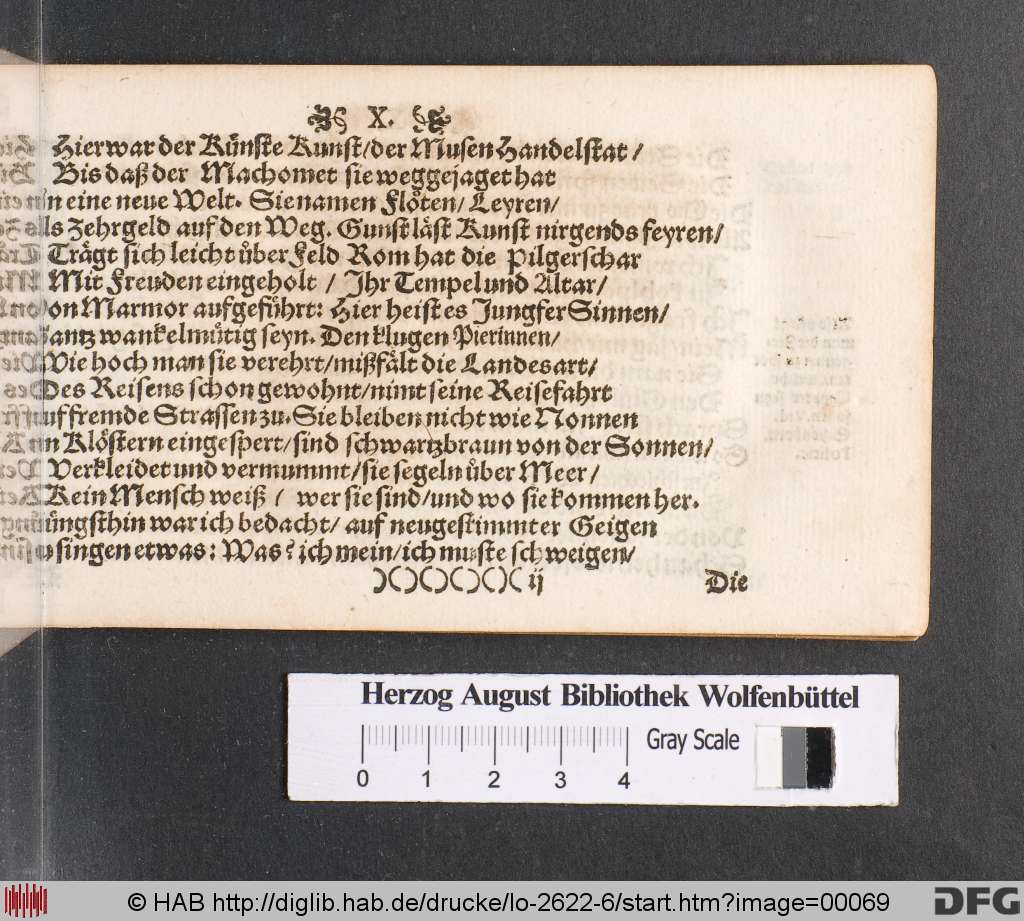 X.
Hier war der Künste Kunst/der Musen Handelstat/
Bis daß der Machomet sie weggejaget hat
eine neue Welt. Sie namen Flöten/ Leyren/
Zehrgeld auf den Weg. Gunst läst Kunst nirgends feyren/
Trägt sich leicht über Feld Rom hat die Pilgerschar
Mit Freuden eingeholt/ Ihr Tempel und Altar/
Von Marmor aufgeführt: Hier heist es Jungfer Sinnen/
Gantz wankelmütig seyn. Den klugen Pierinnen/
Wie hoch man sie verehrt/mißfält die Landesart/
Des Reisens schon gewohnt/nimt seine Reisefahrt
Auf fremde Strassen zu. Sie bleiben nicht wie Nonnen
In Klöstern eingespert/sind schwartzbraun von der Sonnen/
Verkleidet und vermummt/sie segeln über Meer/
Kein Mensch weiß/ wer sie sind/und wo sie kommen her.
Jüngsthin war ich bedacht/ auf neugestimmter Geigen
singen etwas: Was? ich mein/ich muste schweigen/
)()()()()( ij Die
Herzog August Bibliothek Wolfenbüttel
Gray Scale
0 1 2 3 4
© HAB http://diglib.hab.de/drucke/lo-2622-6/start.htm?image=00069
DFG